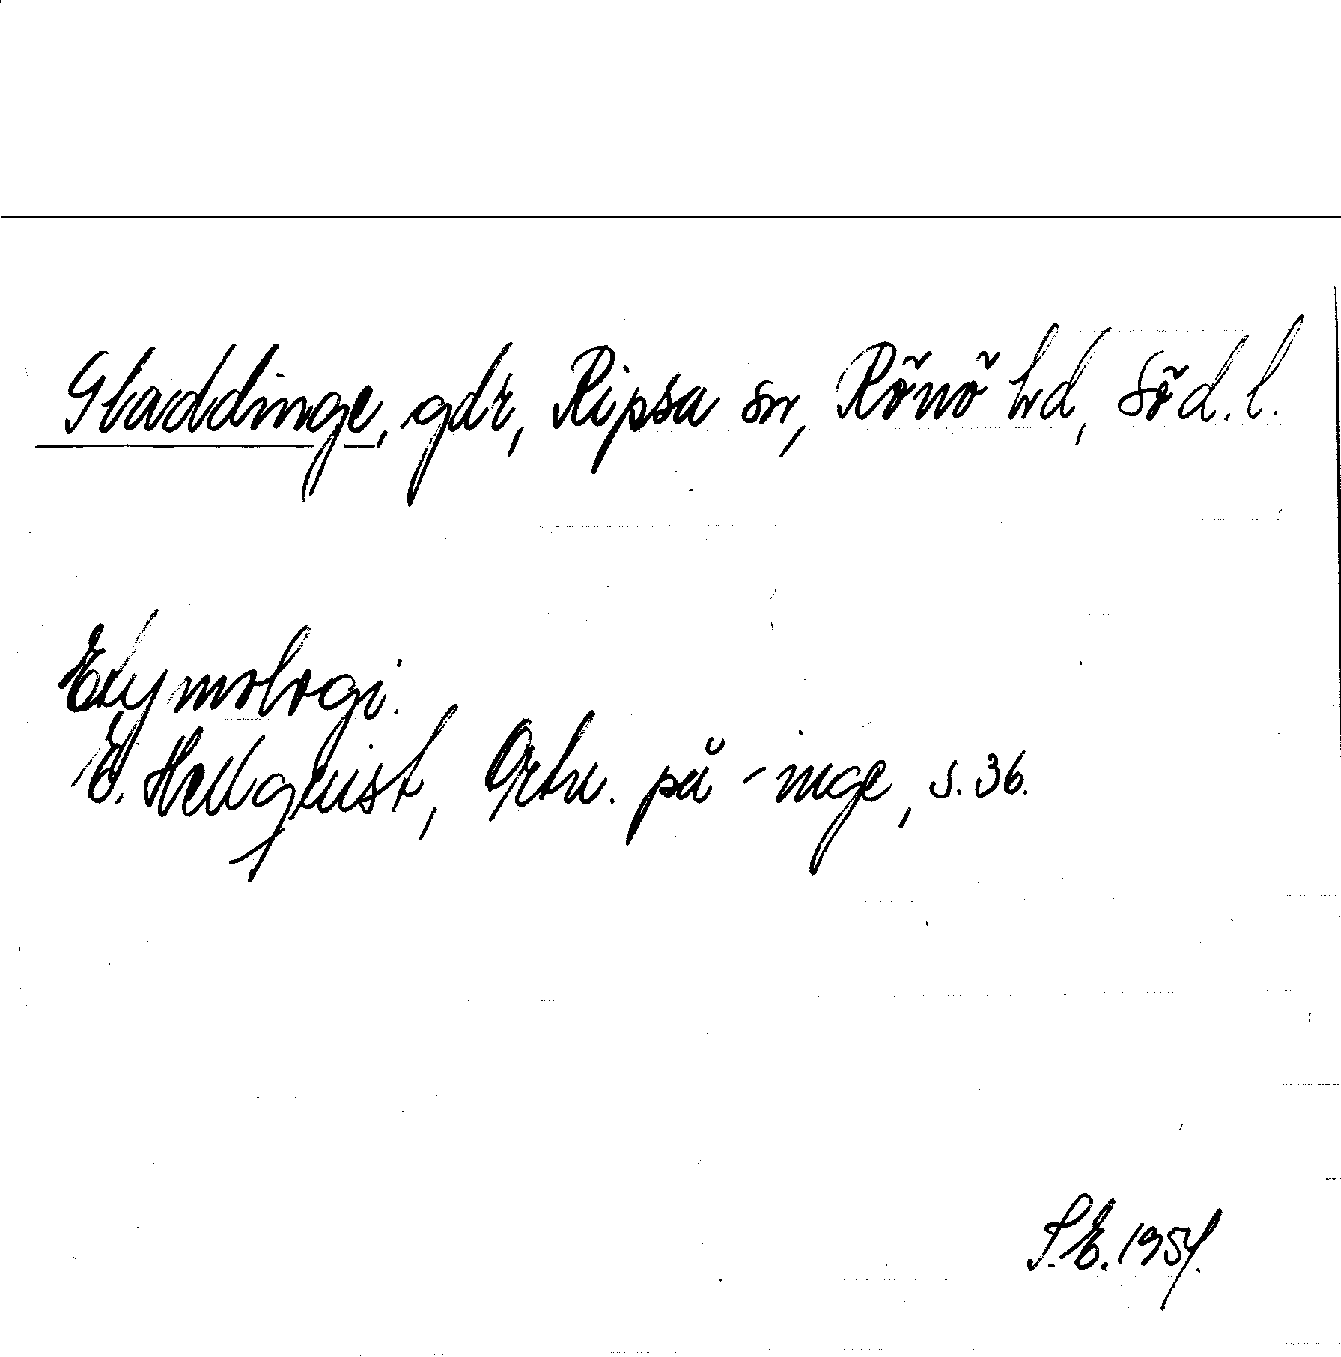 Gladdinge, gdr, Ripsa sn, Rönö hd, Söd. l.
Etymologi.
E. Hellquist, Ortn. på -inge, s. 36.
S. E. 1954.